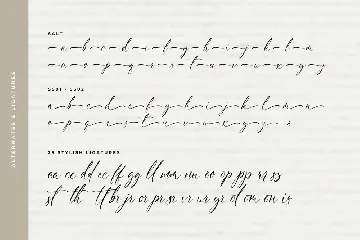 ALTERNATES & LIGATURES
SALT
a b c d e f g h i j k l m
n o p q r s t u v w x y z
SS01 - SS02
a b c d e f g h i j k l m n
o p q r s t u v w x y z
28 STYLISH LIGATURES
aa cc dd ee ff gg ll mm nn oo op pp rr ss
st th tt br jr or pr sr vr ur yr ol om on is